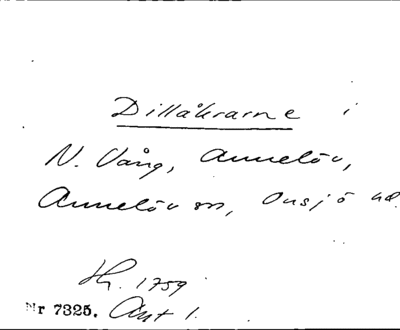 Dillåkrarne i
N. Vång, Annelöv,
Annelöv sn, Onsjö hd.
Hr. 1759
Nr 7325. Akt 1.